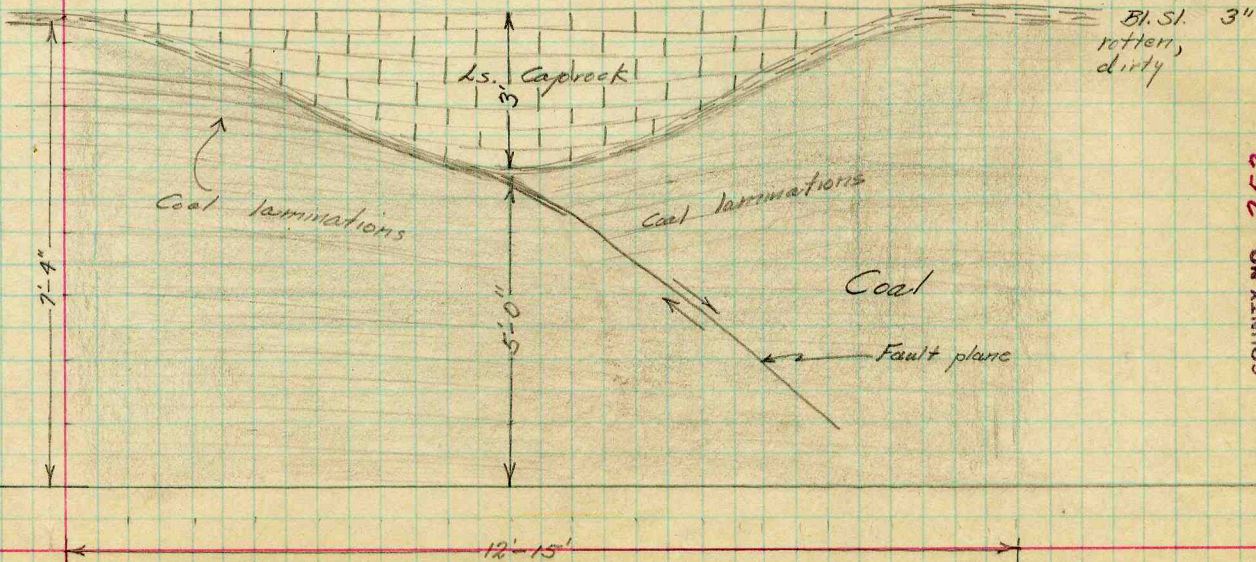 Bl. Sl. 3"
rotten,
dirty
Ls. Caprock
3'
Coal laminations
Coal laminations
7'-4"
5'-0"
Coal
Fault plane
12'-15'
COUNTY NO.